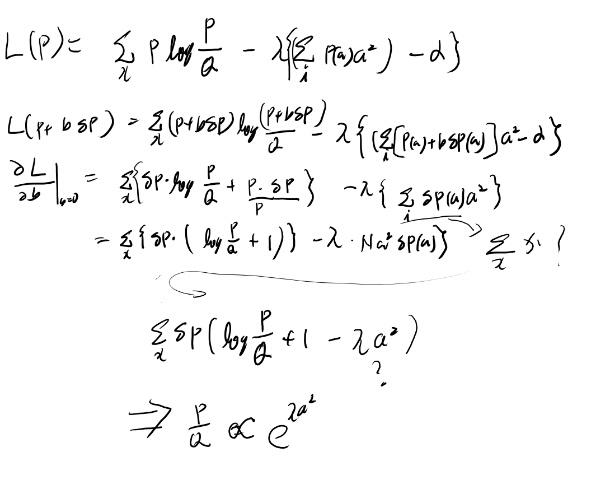 L(P) = Σ_x P log P/Q - λ{(Σ_i P(a)a²) - α}
L(P+bδP) = Σ_x (P+bδP) log (P+bδP)/Q - λ{(Σ_i [P(a)+bδP(a)]a² - α}
∂L/∂b |_{b=0} = Σ_x {δP·log P/Q + P·δP/P} - λ{Σ_i δP(a)a²}
= Σ_x {δP·(log P/Q + 1)} - λ·Na²δP(a)} Σ_x が?
Σ_x δP(log P/Q + 1 - λa²)
?
⇒ P/Q ∝ e^{λa²}